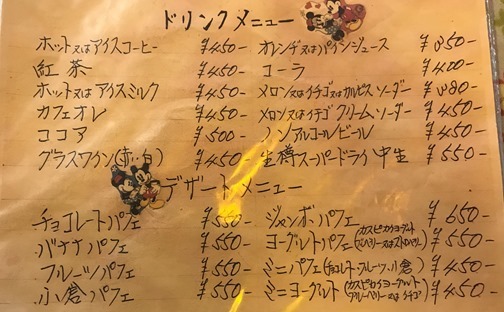 ドリンクメニュー
ホット又はアイスコーヒー ¥450- オレンヂ又はパインジュース
紅茶 ¥450- コーラ ¥400-
ホット又はアイスミルク ¥450- メロン又はイチゴ又はカルピスソーダー
カフェオレ ¥450- メロン又はイチゴクリームソーダー ¥450-
ココア ¥500- ノンアルコールビール ¥450-
グラスワイン(赤・白) ¥450- 生樽スーパードライ中生 ¥550-
デザートメニュー
チョコレートパフェ ¥550- ジャンボパフェ ¥650-
バナナパフェ ¥550- ヨーグルトパフェ(カスピカイヨーグルト ブルーベリー又はストロベリー) ¥550-
フルーツパフェ ¥550- ミニパフェ(チョコレート・フルーツ・小倉) ¥450-
小倉パフェ ¥550- ミニヨーグルト(カスピカイヨーグルト ブルーベリー又はイチゴ) ¥450-